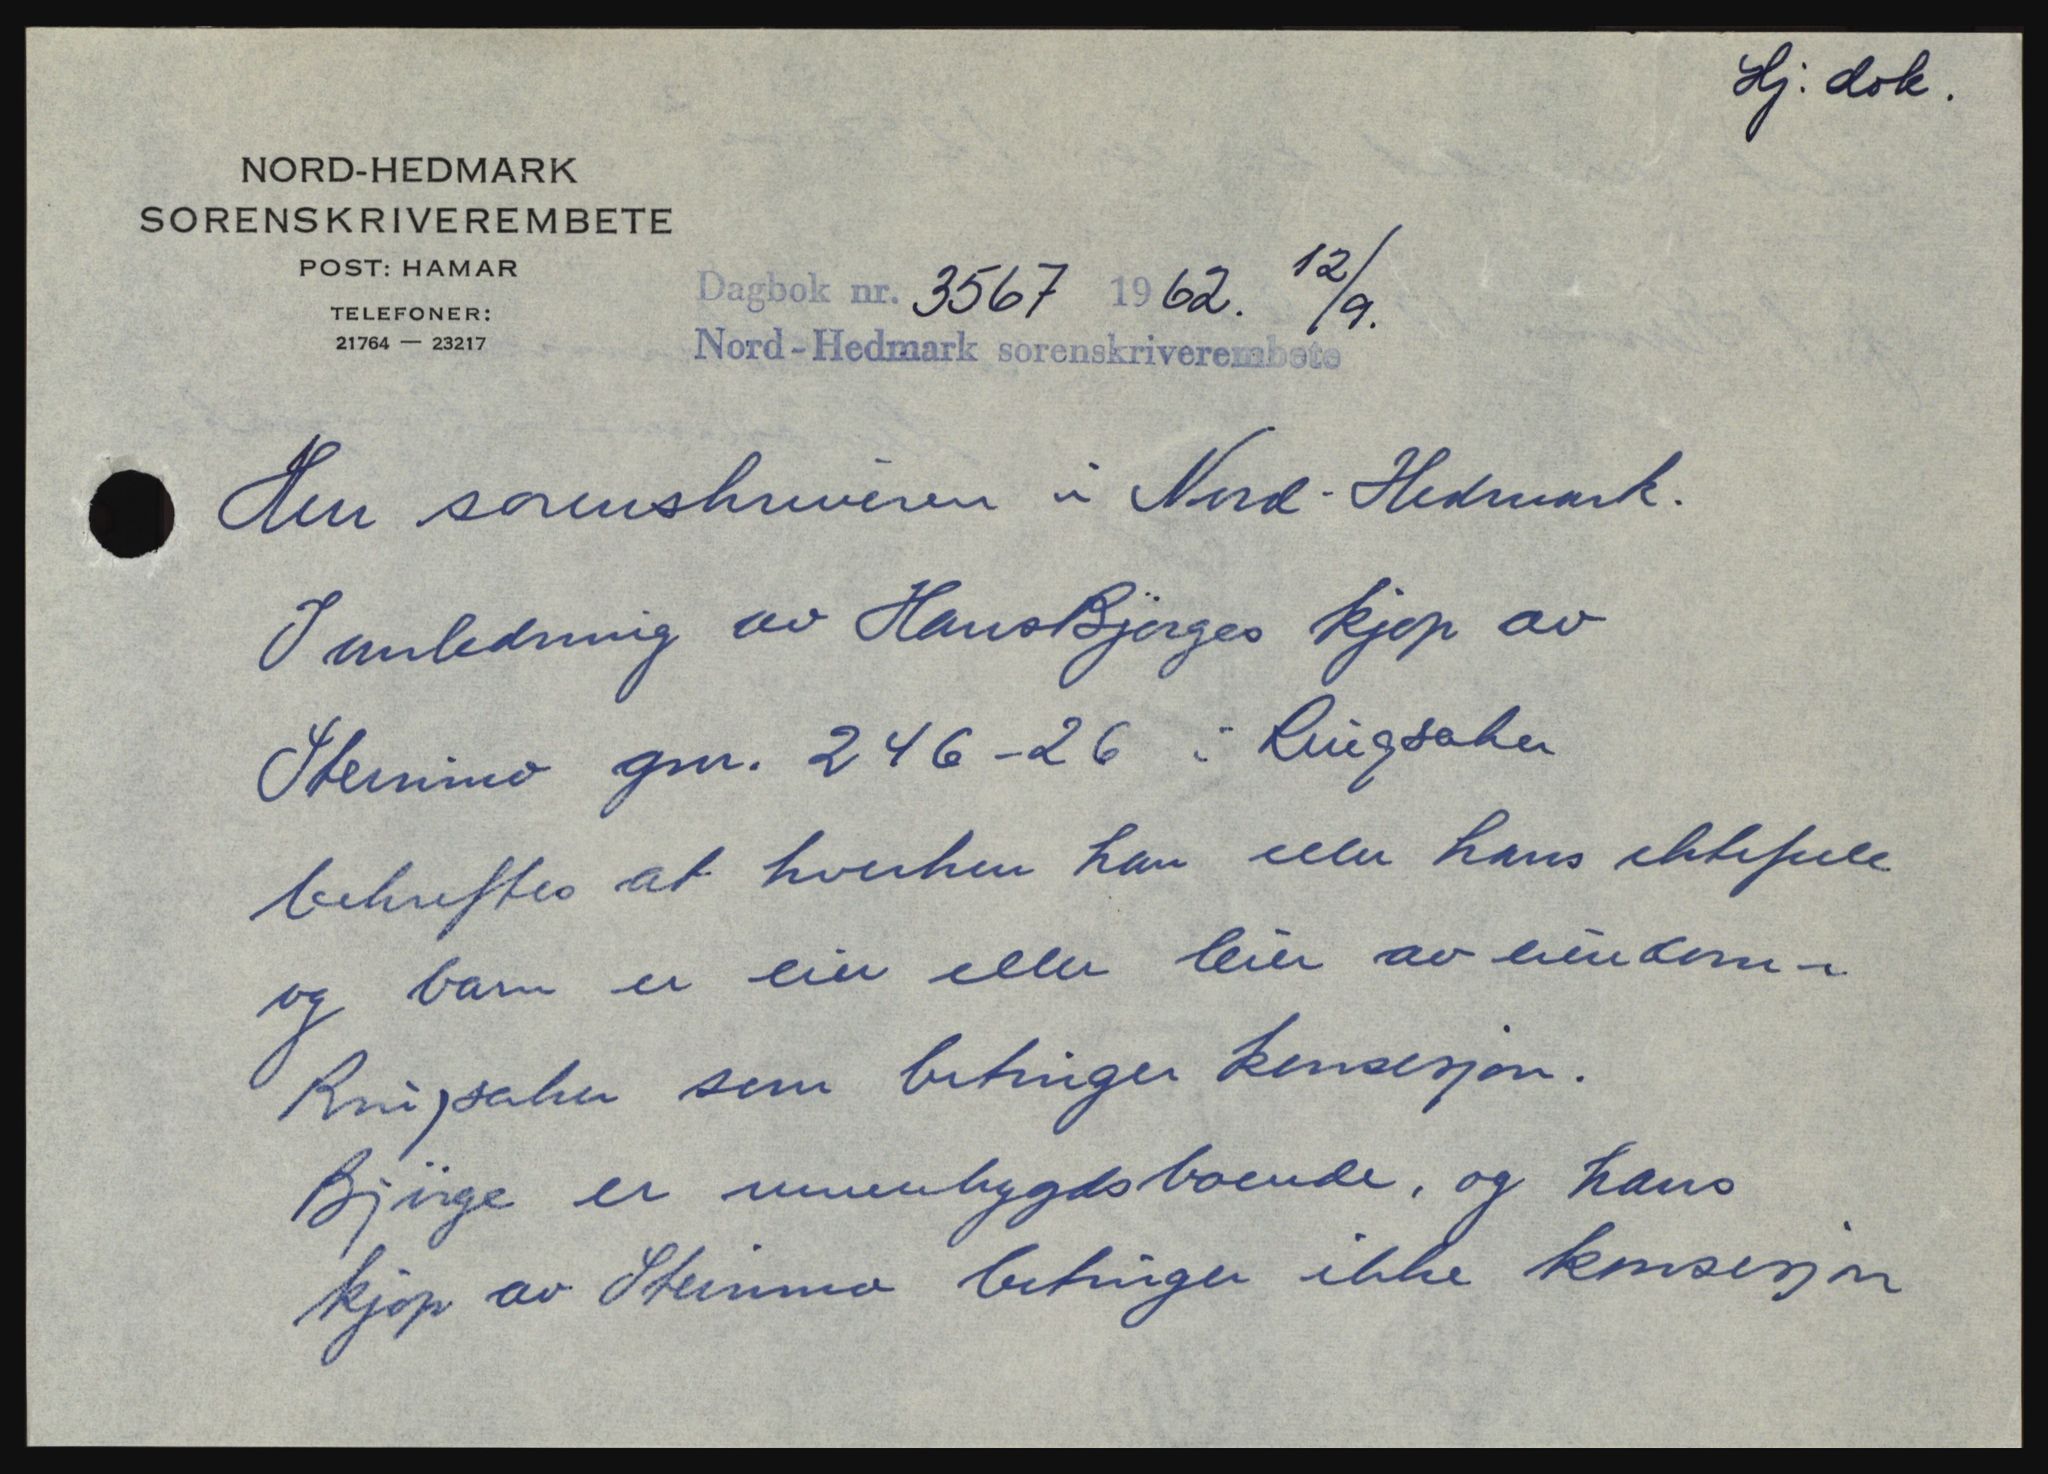 Hj. dok.
NORD-HEDMARK
SORENSKRIVEREMBETE
POST: HAMAR
TELEFONER:
21764 — 23217
Dagbok nr. 3567 1962. 12/9.
Nord-Hedmark sorenskriverembete
Herr sorenskriveren i Nord-Hedmark.
I anledning av Hans Bjørges kjøp av
Steinmo gnr. 246-26 i Ringsaker
bekreftes at hverken han eller hans ektefelle
og barn er eier eller leier av eiendom i
Ringsaker som betinger konsesjon.
Bjørge er innenbygdsboende, og hans
kjøp av Steinmo betinger ikke konsesjon